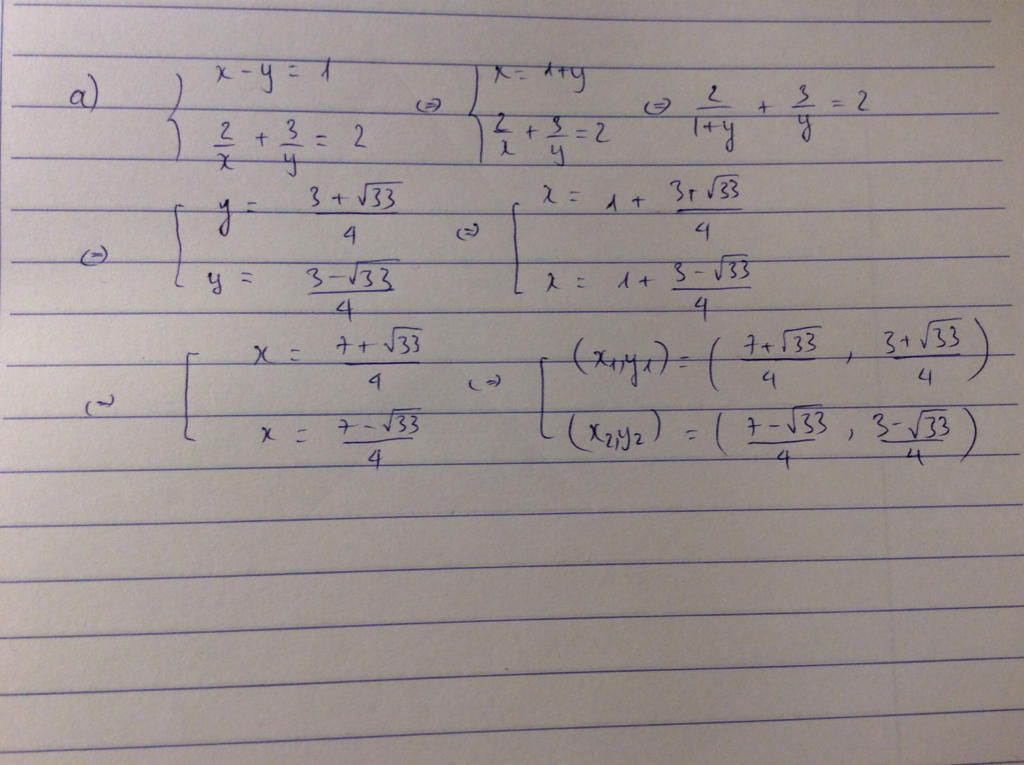 a) { x - y = 1 ; 2/x + 3/y = 2 (=) { x = 1+y ; 2/x + 3/y = 2 (=) 2/(1+y) + 3/y = 2
(=) [ y = (3 + √33)/4 ; y = (3 - √33)/4 (=) [ x = 1 + (3+√33)/4 ; x = 1 + (3 - √33)/4
(=) [ x = (7 + √33)/4 ; x = (7 - √33)/4 (=) [ (x₁,y₁) = ( (7+√33)/4 , (3+√33)/4 ) ; (x₂,y₂) = ( (7-√33)/4 , (3-√33)/4 )